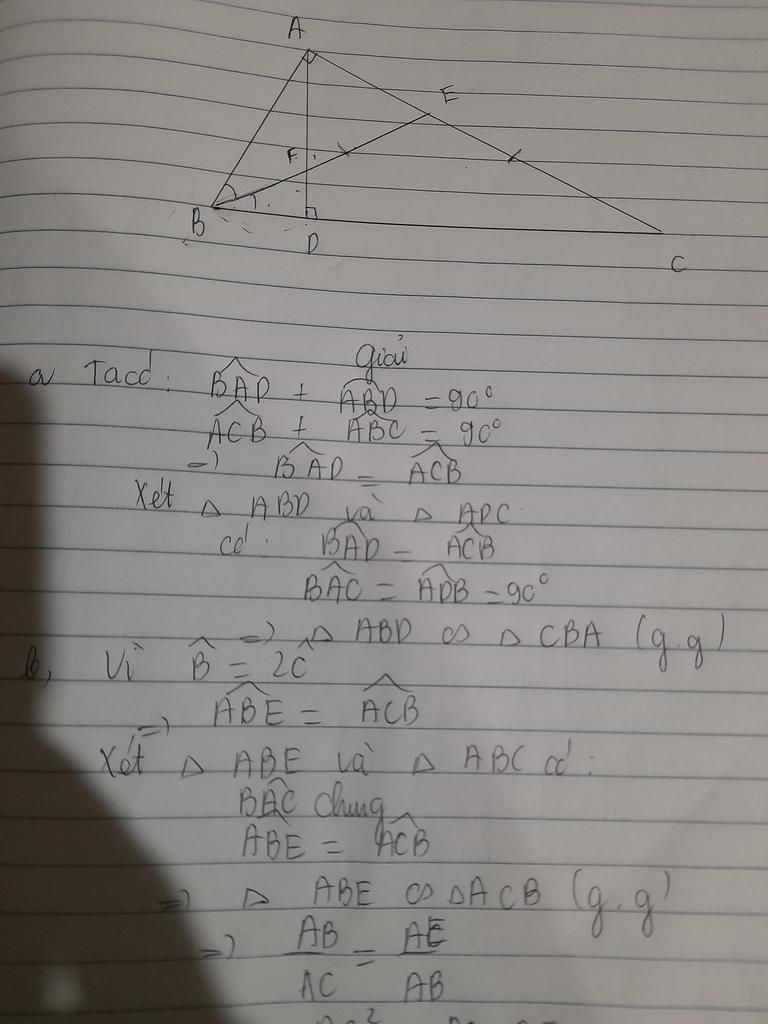 A
E
F
B
D
C
Giải
a Ta có: BAD + ABD = 90°
ACB + ABC = 90°
=) BAD = ACB
Xét △ ABD và △ ADC
có: BAD = ACB
BAC = ADB = 90°
=) △ ABD ∽ △ CBA (g.g)
b, Vì B̂ = 2Ĉ
=) ABE = ACB
Xét △ ABE và △ ABC có:
BAC chung
ABE = ACB
=) △ ABE ∽ △ACB (g.g)
=) AB/AC = AE/AB